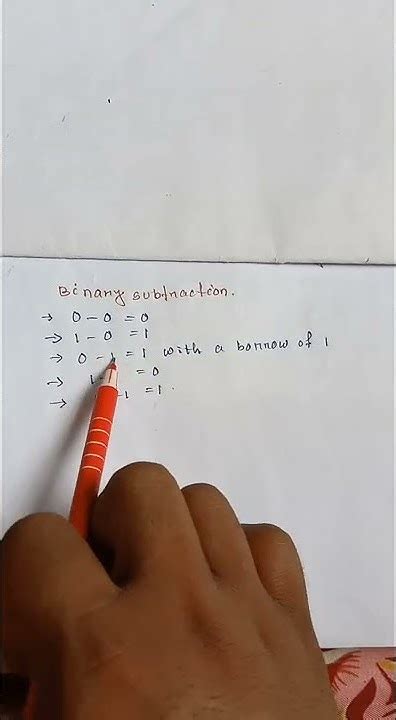 Binary subtraction.
→ 0 - 0 = 0
→ 1 - 0 = 1
→ 0 - 1 = 1 with a borrow of 1
→ 1 - = 0
→ - 1 = 1.